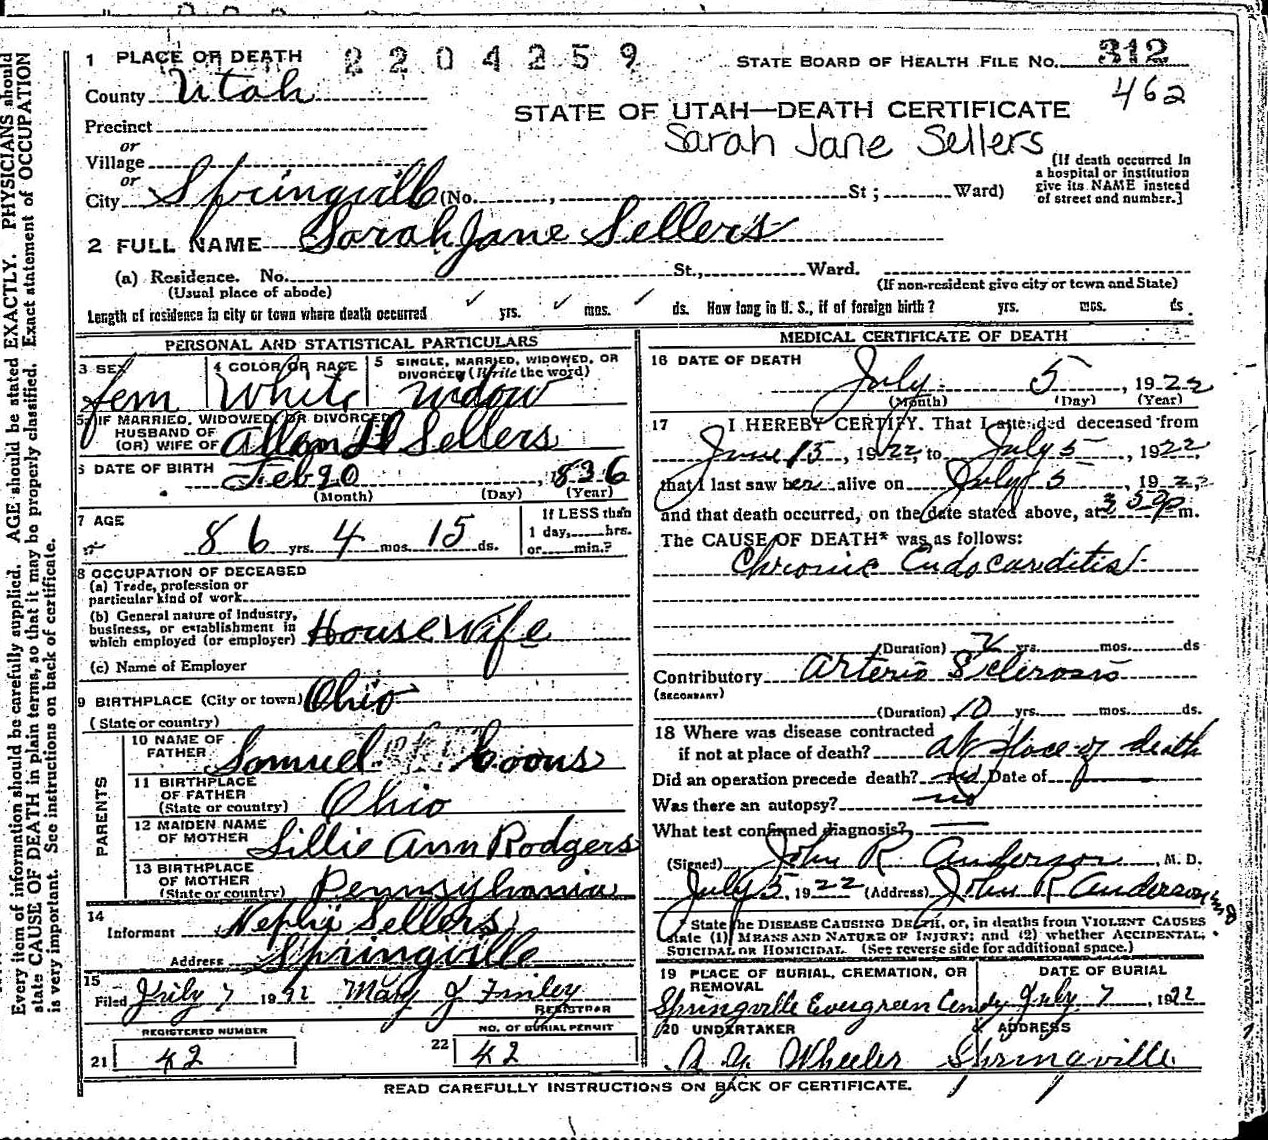 1 PLACE OF DEATH 2204259 STATE BOARD OF HEALTH FILE No. 312
County Utah 462
STATE OF UTAH—DEATH CERTIFICATE
Precinct
Sarah Jane Sellers
or
Village
or
City Springville (No. , St; Ward)
(If death occurred in
a hospital or institution
give its NAME instead
of street and number.]
2 FULL NAME Sarah Jane Sellers
(a) Residence. No. St., Ward.
(Usual place of abode) (If non-resident give city or town and State)
Length of residence in city or town where death occurred yrs. mos. ds. How long in U. S., if of foreign birth? yrs. mos. ds
PERSONAL AND STATISTICAL PARTICULARS
3 SEX 4 COLOR OR RACE 5 SINGLE, MARRIED, WIDOWED, OR
DIVORCED (Write the word)
fem White widow
IF MARRIED, WIDOWED, OR DIVORCED
HUSBAND OF
(OR) WIFE OF Allen Sellers
6 DATE OF BIRTH Feb 20, 1836
(Month) (Day) (Year)
7 AGE If LESS than
1 day, hrs.
86 yrs. 4 mos. 15 ds. or min.?
8 OCCUPATION OF DECEASED
(a) Trade, profession or
particular kind of work
(b) General nature of Industry,
business, or establishment in
which employed (or employer) House Wife
(c) Name of Employer
9 BIRTHPLACE (City or town) Ohio
(State or country)
PARENTS
10 NAME OF
FATHER Samuel Coons
11 BIRTHPLACE
OF FATHER
(State or country) Ohio
12 MAIDEN NAME
OF MOTHER Lillie Ann Rodgers
13 BIRTHPLACE
OF MOTHER
(State or country) Pennsylvania
14
Informant Nephi Sellers
Address Springville
15
Filed July 7 1922 Mary J Finley
REGISTRAR
REGISTERED NUMBER NO. OF BURIAL PERMIT
21 42 22 42
MEDICAL CERTIFICATE OF DEATH
16 DATE OF DEATH
July 5, 1922
(Month) (Day) (Year)
17 I HEREBY CERTIFY. That I attended deceased from
June 15, 1922, to July 5, 1922,
that I last saw her alive on July 5, 1922
and that death occurred, on the date stated above, at 3 50 p m.
The CAUSE OF DEATH* was as follows:
Chronic Endocarditis
(Duration) yrs. mos. ds
Contributory Arterio Sclerosis
(SECONDARY)
(Duration) 10 yrs. mos. ds.
18 Where was disease contracted
if not at place of death? at place of death
Did an operation precede death? no Date of
Was there an autopsy? no
What test confirmed diagnosis?
(Signed) John R Anderson, M. D.
July 5, 1922 (Address) John R Anderson
State the DISEASE CAUSING DEATH, or, in deaths from VIOLENT CAUSES
state (1) MEANS AND NATURE OF INJURY; and (2) whether ACCIDENTAL,
SUICIDAL OR HOMICIDAL. (See reverse side for additional space.)
19 PLACE OF BURIAL, CREMATION, OR
REMOVAL DATE OF BURIAL
Springville Evergreen Cemetry July 7, 1922
20 UNDERTAKER ADDRESS
A. Y. Wheeler Springville
READ CAREFULLY INSTRUCTIONS ON BACK OF CERTIFICATE.
Every item of information should be carefully supplied. AGE should be stated EXACTLY. PHYSICIANS should
state CAUSE OF DEATH in plain terms, so that it may be properly classified. Exact statement of OCCUPATION
is very important. See instructions on back of certificate.